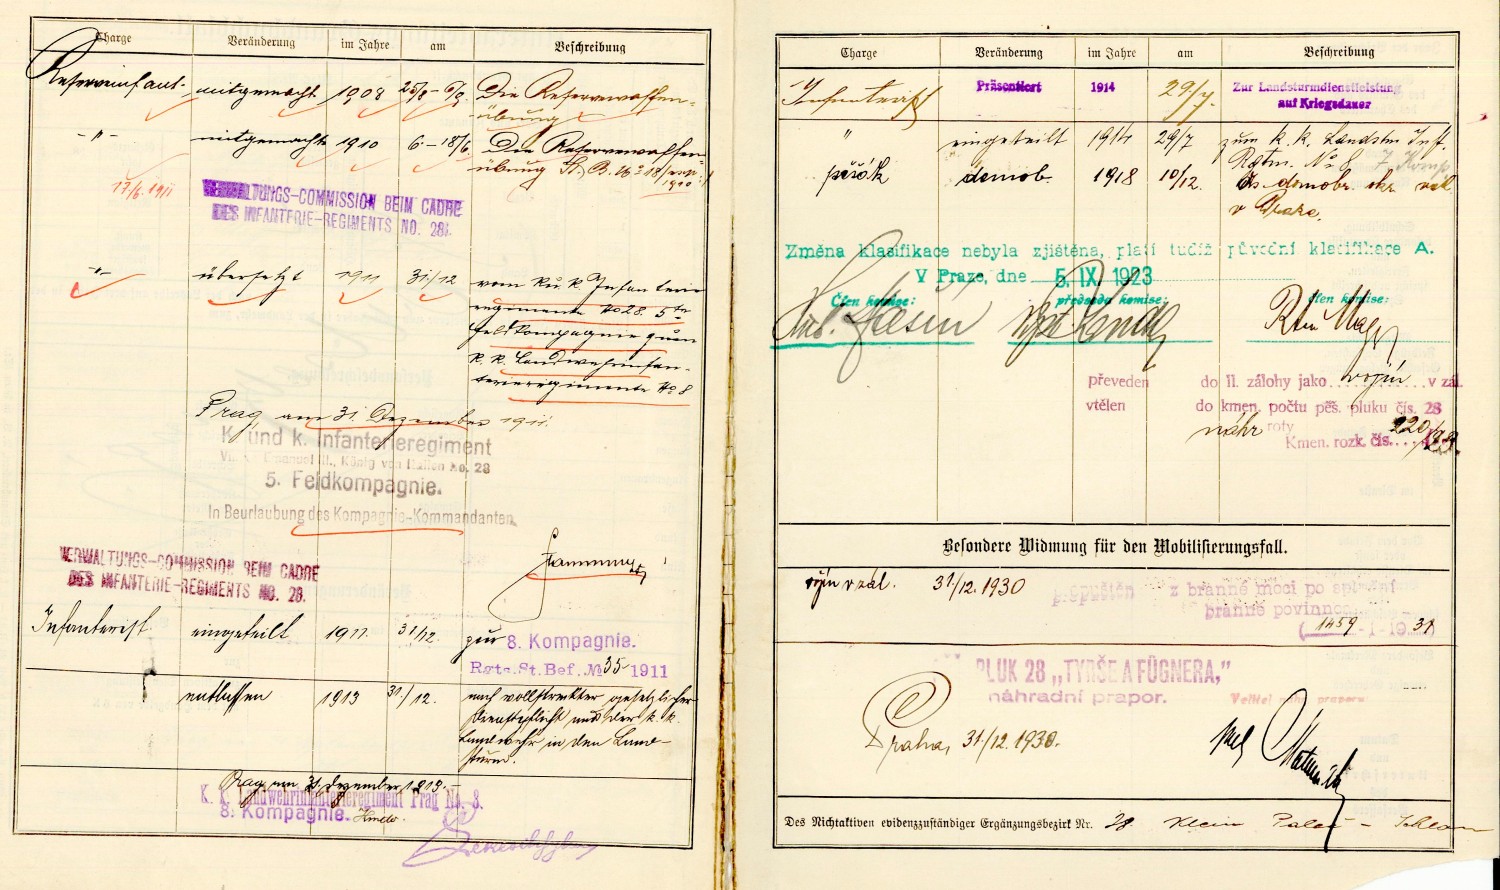 Charge Veränderung im Jahre am Beschreibung
Reserveinfant. mitgemacht 1908 25/8 - 6/9. Die Reservewaffen-
übung
-"- mitgemacht 1910 6. - 18/6 Die Reservewaffen-
übung St. B. No 18/
1910
17/6. 1911
VERWALTUNGS-COMMISSION BEIM CADRE
DES INFANTERIE-REGIMENTS NO. 28.
-"- übersetzt 1911 31./12 vom k.u.k. Infanterie
regimente No 28. 5te
Feldkompagnie zum
k.k. Landwehrinfan-
terieregimente No 8
Prag, am 31. Dezember 1911.
K. und k. Infanterieregiment
Viktor Emanuel III., König von Italien No. 28
5. Feldkompagnie.
In Beurlaubung des Kompagnie-Kommandanten
VERWALTUNGS-COMMISSION BEIM CADRE
DES INFANTERIE-REGIMENTS NO. 28.
Infanterist eingeteilt 1911. 31/12 zur 8. Kompagnie.
Rgts. St. Bef. No 35 1911
entlassen 1913 31./12. nach vollstreckter gesetzlicher
Dienstpflicht aus der k.k.
Landwehr in den Land-
sturm.
Prag am 31. Dezember 1913.
K. k. Landwehrinfanterieregiment Prag No. 8.
8. Kompagnie.
Charge Veränderung im Jahre am Beschreibung
Infanterist Präsentiert 1914 29/7. Zur Landsturmdienstleistung
auf Kriegsdauer
" eingeteilt 1914 29/7 zum k.k. Landstm. Inft.
Rgtm. No 8 7. Komp.
pěšák demob. 1918 10/12. demobr. okr. vel.
v Praze.
Změna klasifikace nebyla zjištěna, platí tudíž původní klasifikace A.
V Praze, dne 5. IX 1923
Člen komise: předseda komise: člen komise:
převeden do II. zálohy jako vojín v zál.
vtělen do kmen. počtu pěš. pluku čís. 28
náhr roty
Kmen. rozk. čís. 220
Besondere Widmung für den Mobilisierungsfall.
vojín v zál. 31/12. 1930 propuštěn z branné moci po splnění
branné povinnosti
(1459 - I - 1931)
PLUK 28 „TYRŠE A FÜGNERA,"
náhradní prapor.
Velitel náhr. praporu
Praha, 31./12. 1930.
Des Nichtaktiven evidenzzuständiger Ergänzungsbezirk Nr. 28 Klein